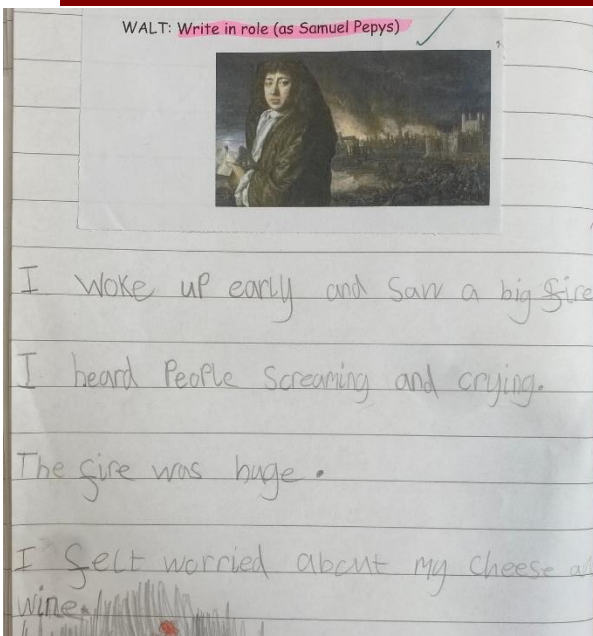 WALT: Write in role (as Samuel Pepys)
I woke up early and saw a big fire
I heard People Screaming and crying.
The fire was huge.
I felt worried about my cheese
wine.